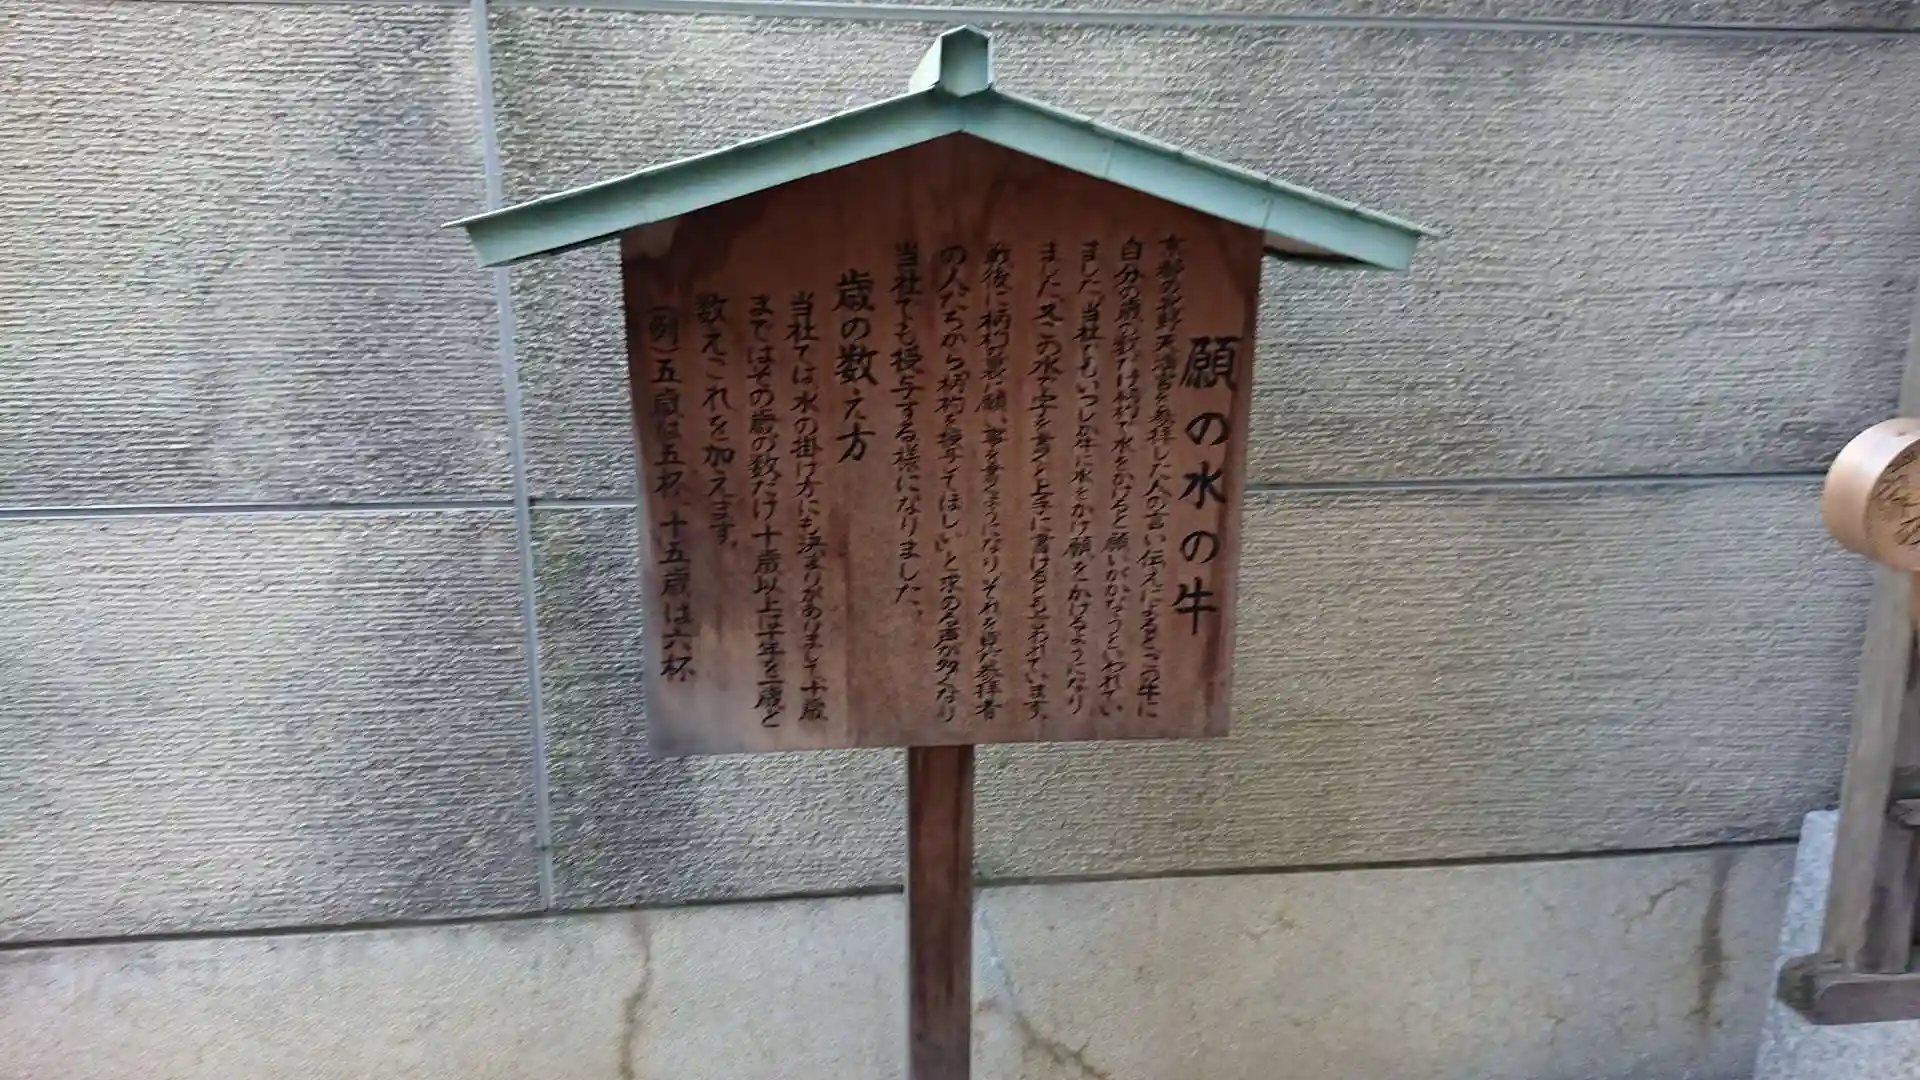 願の水の牛
京都の北野天満宮を参拝した人の言い伝えによると、この牛に
自分の歳の数だけ柄杓で水をかけると願いがかなうといわれてい
ました。当社でもいつしか牛に水をかけ願をかけるようになり
ました。又この水で字を書くと上手に書けるとも云われています。
戦後に柄杓の裏に願い事を書くようになりそれを見た参拝者
の人たちから「柄杓を授与してほしい」と求める声が多くなり
当社でも授与する様になりました。
歳の数え方
当社では、水の掛け方にも決まりがありまして、十歳
まではその歳の数だけ十歳以上は十年を一歳と
数えこれを加えます。
(例)五歳は五杯、十五歳は六杯